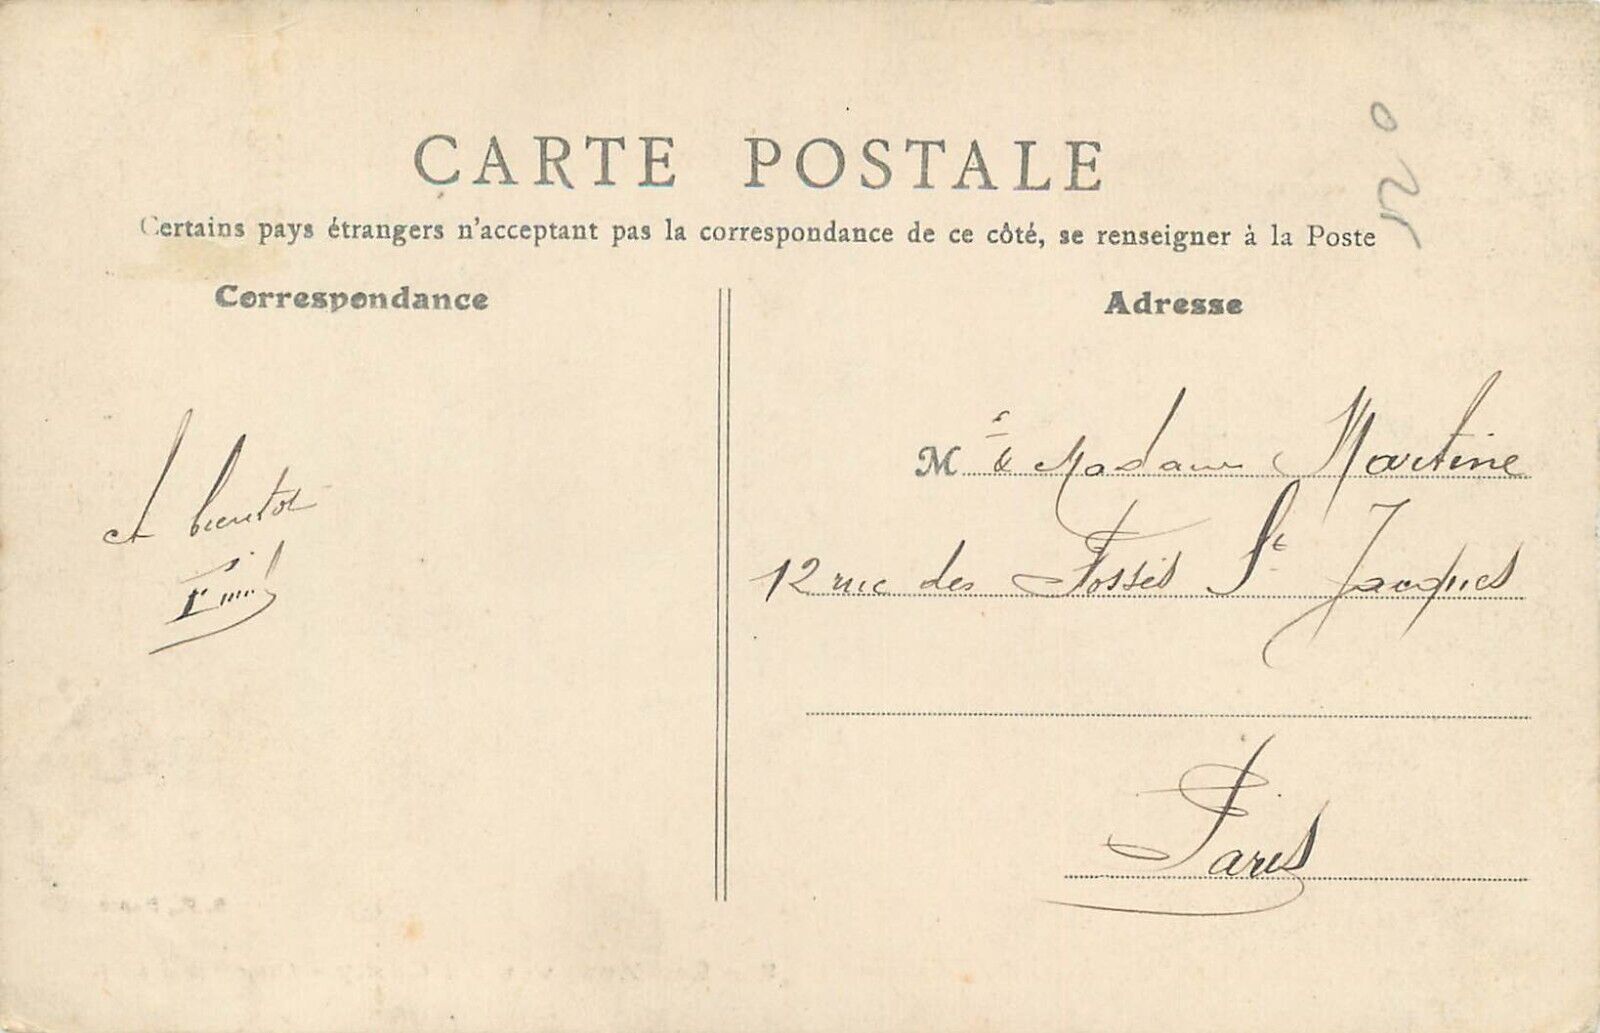 CARTE POSTALE
Certains pays étrangers n'acceptant pas la correspondance de ce côté, se renseigner à la Poste
Correspondance
A bientot
Emil
Adresse
Mr & Madame Martine
12 rue des Fossés St Jacques
Paris